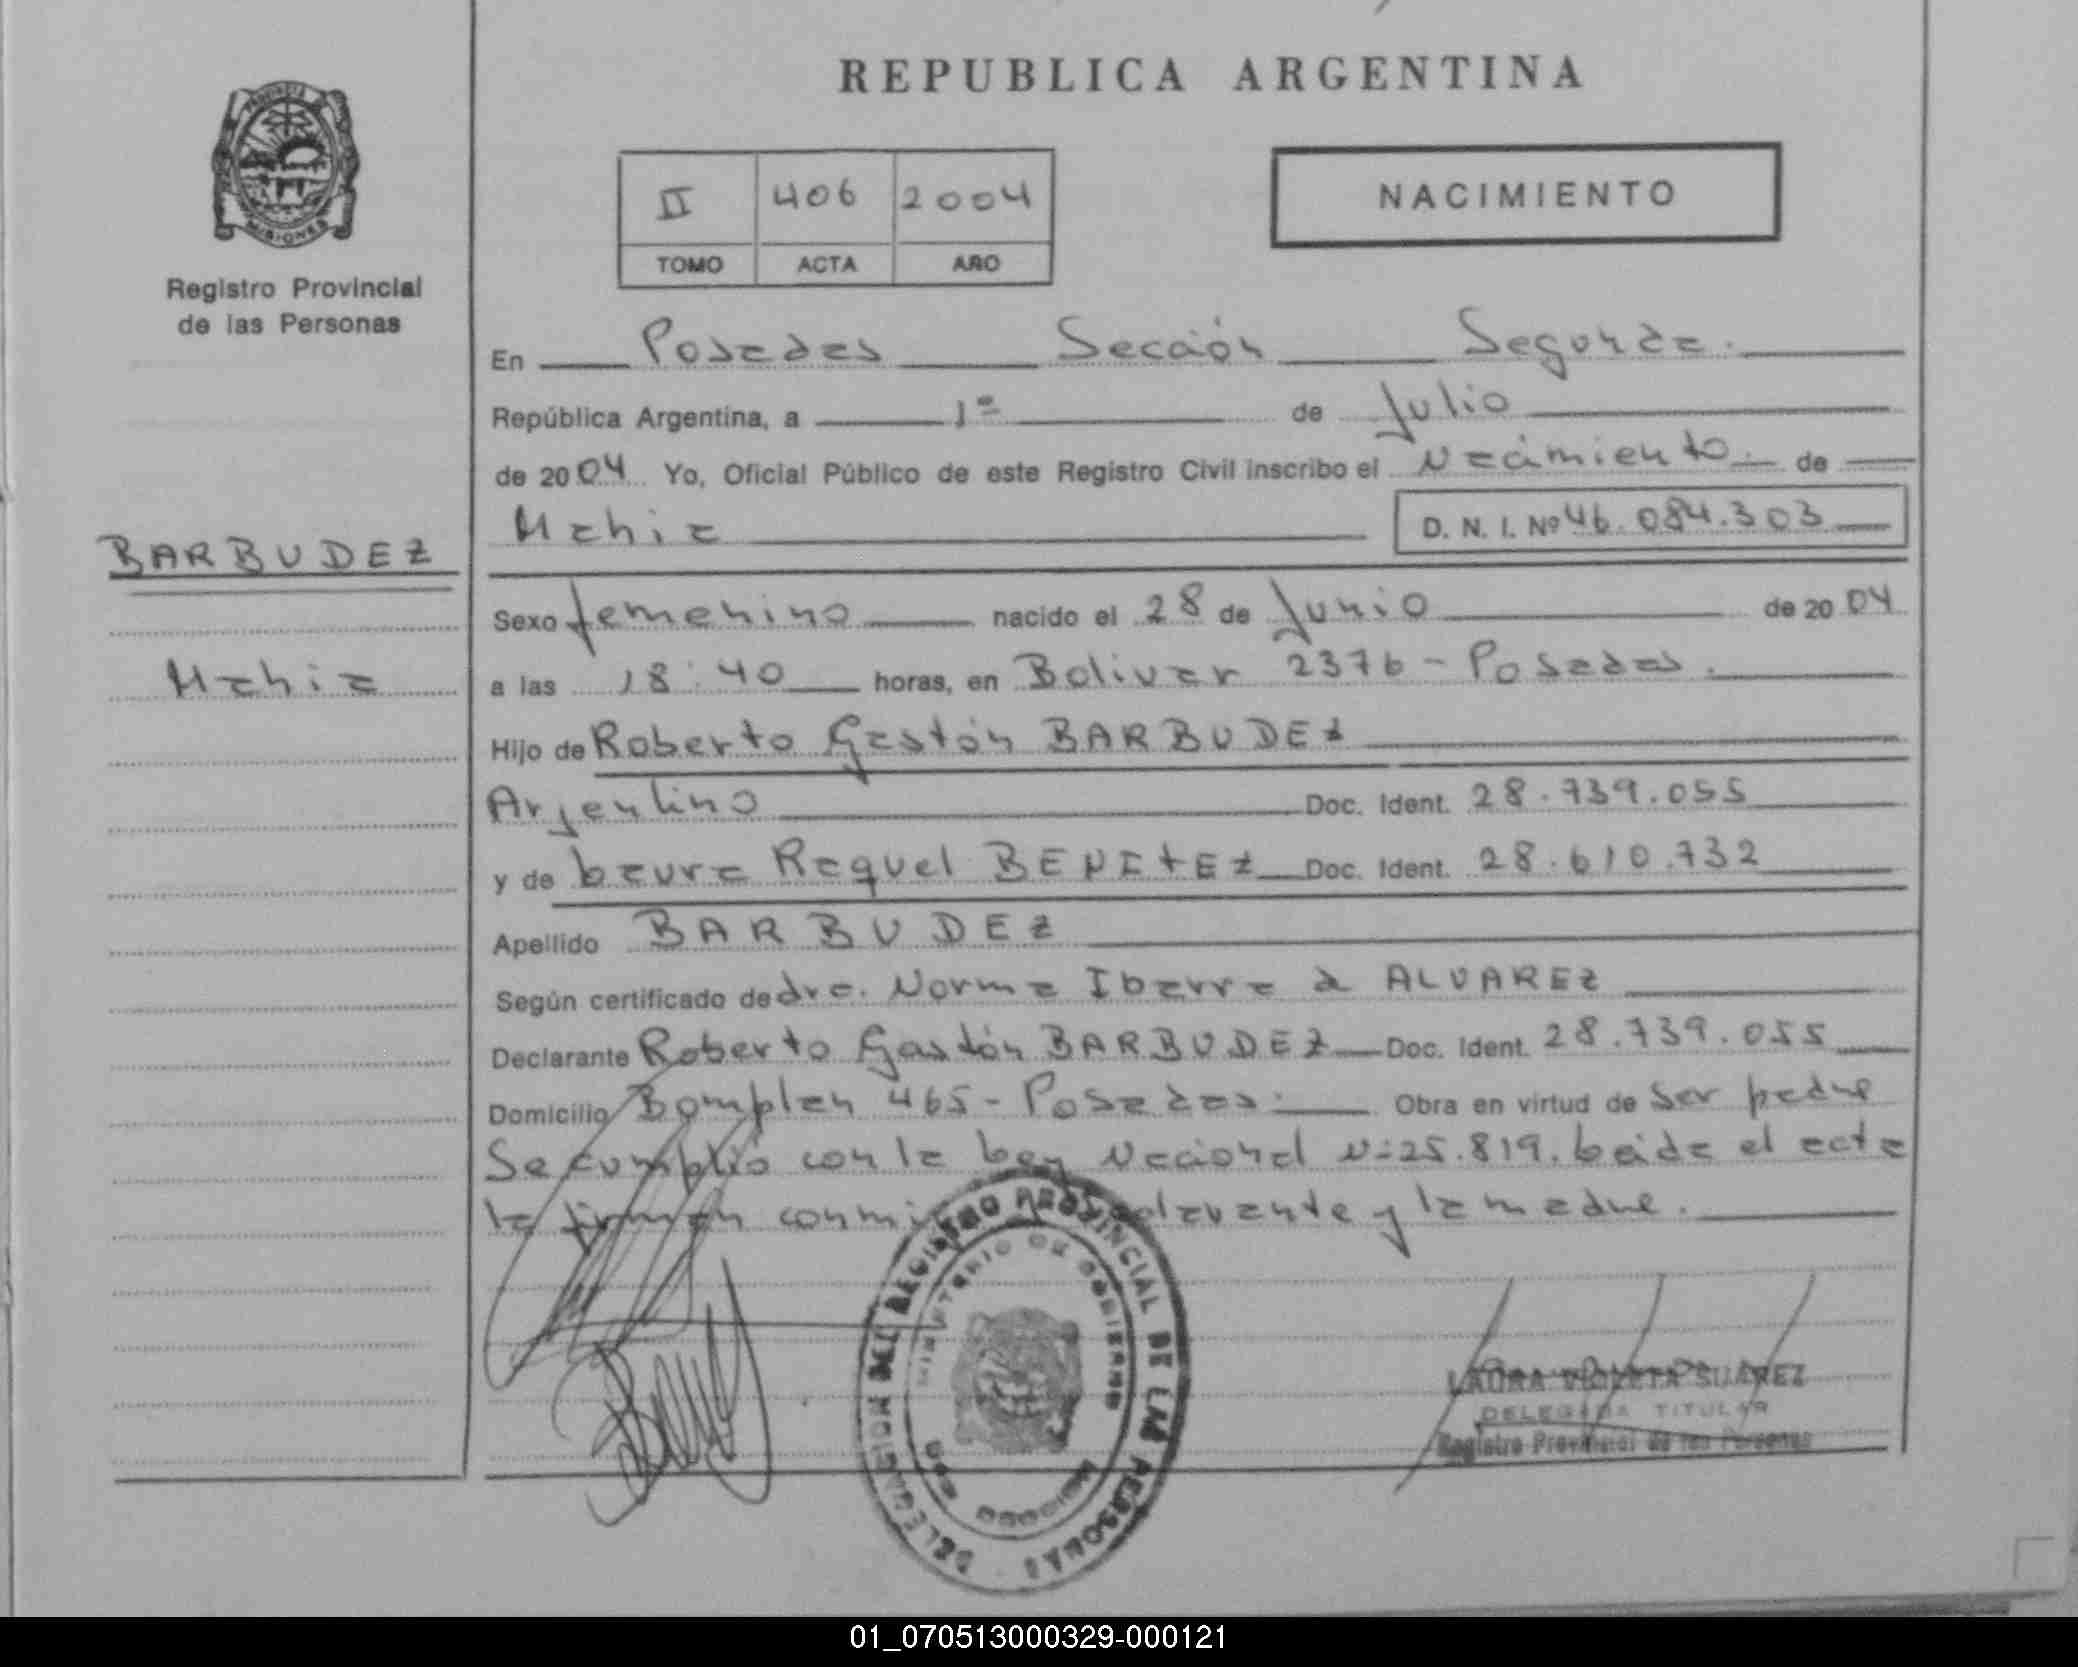 REPUBLICA ARGENTINA
PROVINCIA
MISIONES
Registro Provincial
de las Personas
II 406 2004
TOMO ACTA AÑO
NACIMIENTO
En Posadas Sección Segunda.
República Argentina, a 1º de Julio
de 2004 Yo, Oficial Público de este Registro Civil inscribo el Nacimiento de
Mahia D. N. I. Nº 46.084.303
BARBUDEZ
Mahia
Sexo femenino nacido el 28 de Junio de 2004
a las 18:40 horas, en Bolivar 2376 - Posadas.
Hijo de Roberto Gastón BARBUDEZ
Argentino Doc. Ident. 28.739.055
y de Laura Raquel BENITEZ Doc. Ident. 28.610.732
Apellido BARBUDEZ
Según certificado de dra. Norma Ibarra d ALVAREZ
Declarante Roberto Gastón BARBUDEZ Doc. Ident. 28.739.055
Domicilio Bomplan 465 - Posadas. Obra en virtud de ser padre
Se cumplió con la Ley Nacional Nº 25.819. Leida el acta
la firman conmigo y la madre.
DELEGACION DEL REGISTRO PROVINCIAL DE LAS PERSONAS
MINISTERIO DE GOBIERNO
MISIONES
LAURA VIOLETA SUAREZ
DELEGADA TITULAR
Registro Provincial de las Personas
01_070513000329-000121